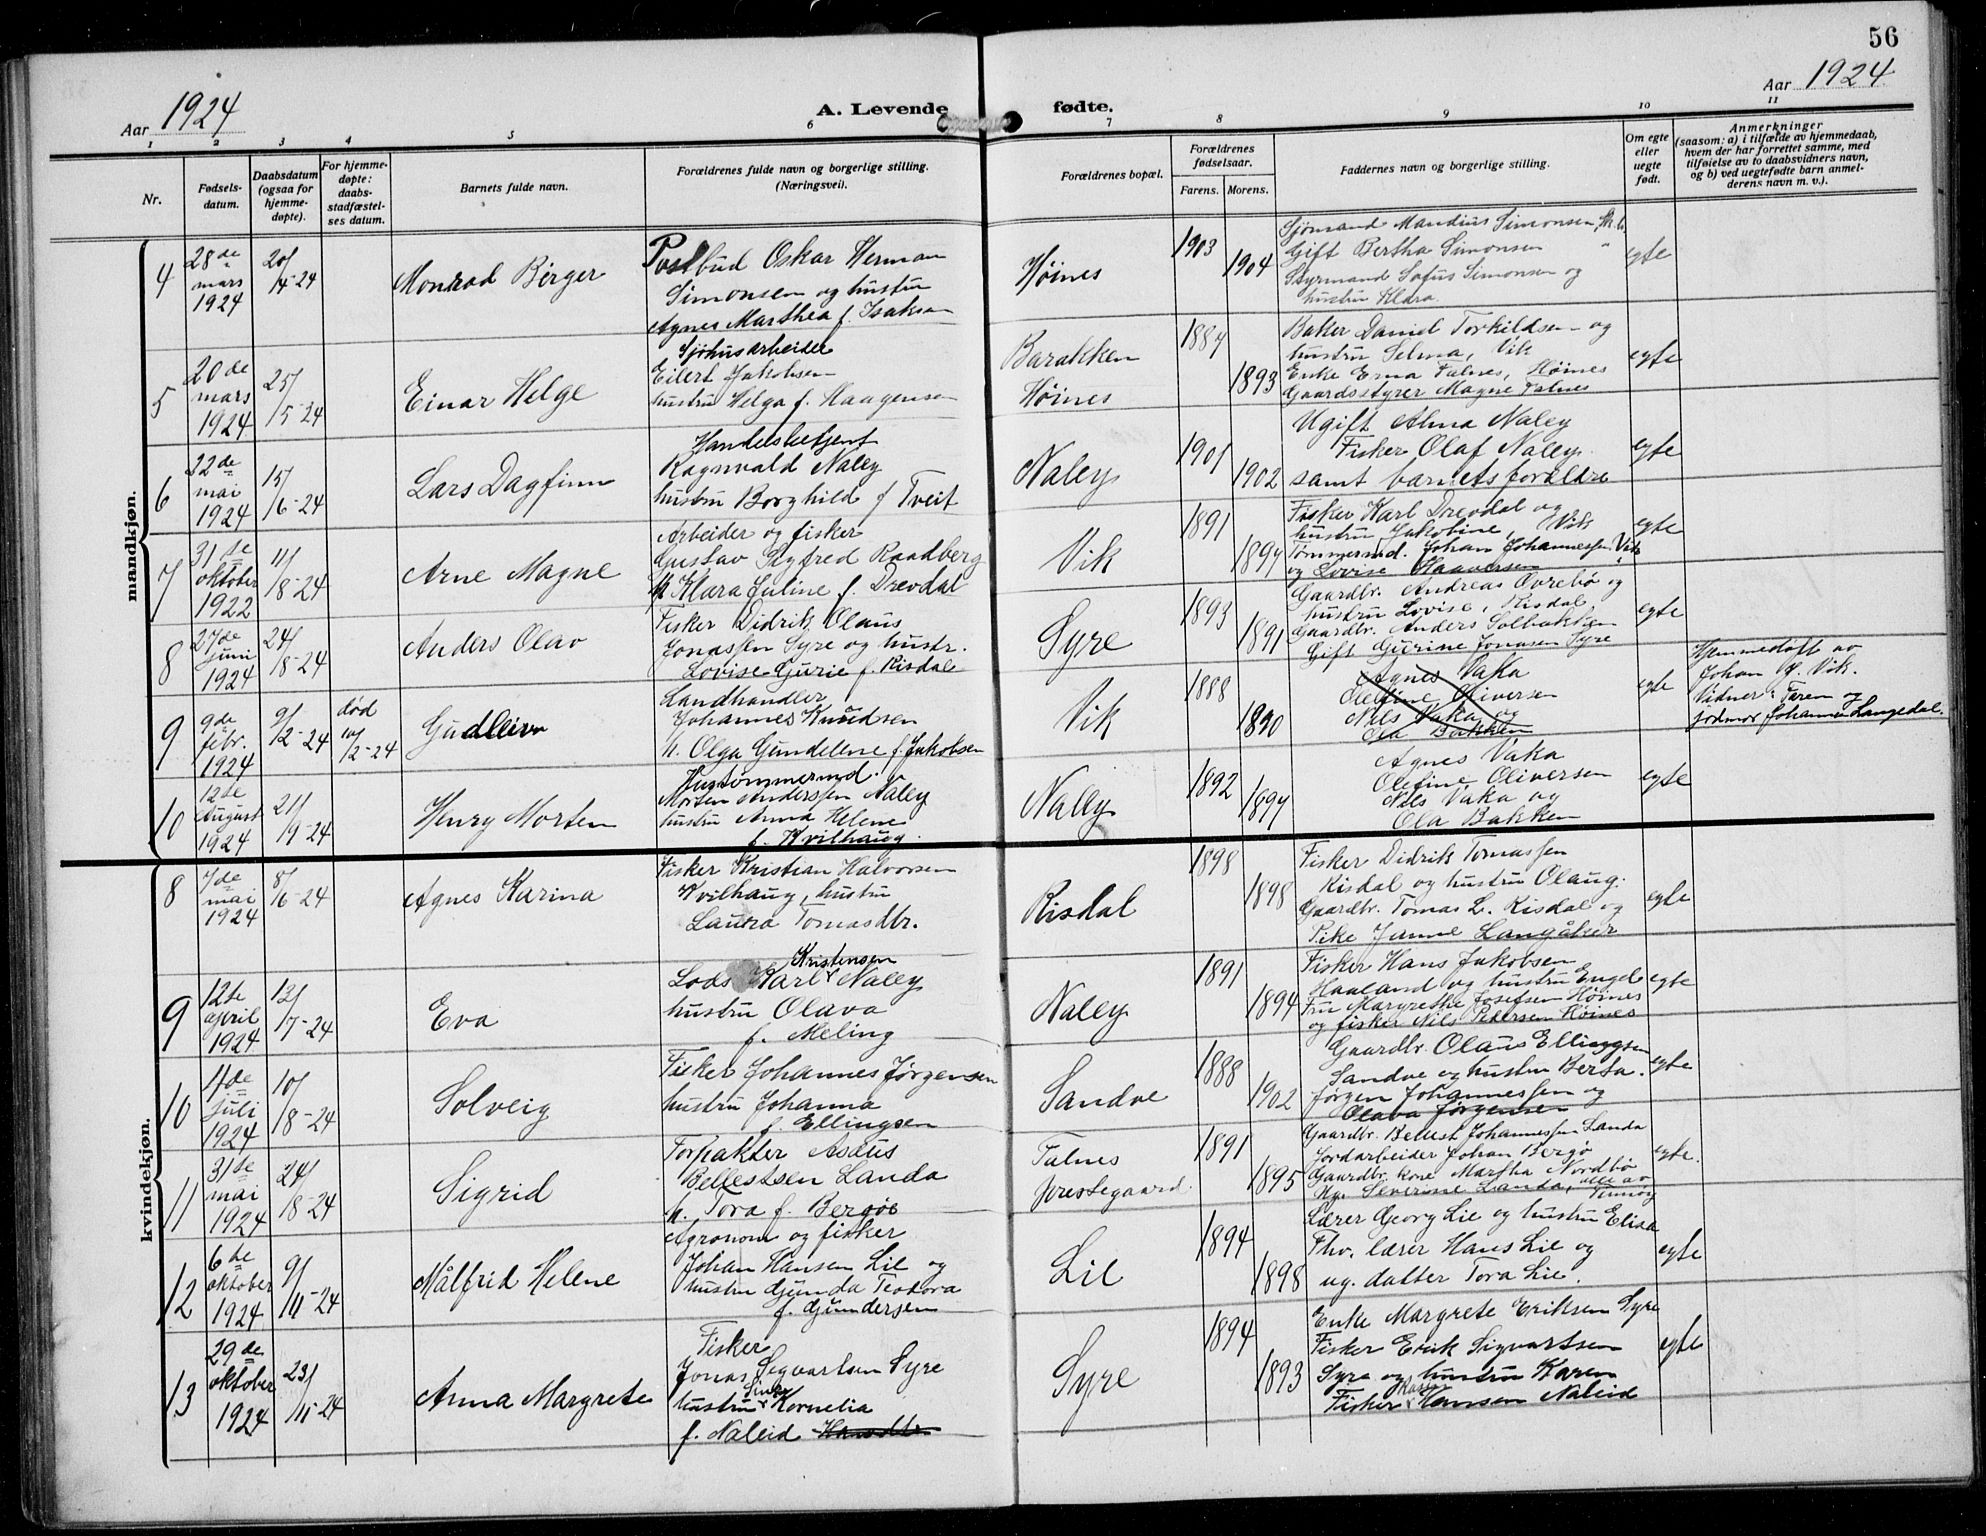 56
Aar 1924
A. Levende
fødte.
Aar 1924
1 2 3 4 5 6 7 8 9 10 11
Nr.
Fødsels-
datum.
Daabsdatum
(ogsaa for
hjemme-
døpte).
For hjemme-
døpte:
daabs-
stadfæstel-
ses datum.
Barnets fulde navn.
Forældrenes fulde navn og borgerlige stilling.
(Næringsvei).
Forældrenes bopæl.
Forældrenes
fødselsaar.
Farens. Morens.
Faddernes navn og borgerlige stilling.
Om egte
eller
uegte
født.
Anmerkninger
(saasom: a) i tilfælde av hjemmedaab,
hvem der har forrettet samme, med
tilføielse av to daabsvidners navn,
og b) ved uegtefødte barn anmel-
derens navn m. v.).
mandkjøn.
4
28de
mars
1924
20/
14-24
Monrad Birger
Postbud Oskar Herman
Simonsen og hustru
Agnes Marthea f. Isaksen
Høines
1903
1904
Sjømand Mandius Simonsen
Gift Bertha Simonsen "
Styrmand Sofus Simonsen og
hustru Klara
egte
5
20de
mars
1924
25/
15-24
Einar Helge
Sjøhusarbeider
Eilert Jakobsen
hustru Helga f. Haagensen
Barakken
Høines
1887
1893
Baker Daniel Torkildsen og
hustru Selma, Vik
Enke Erna Falnes, Høines
Gaardsstyrer Magne Falnes
egte
6
22de
mai
1924
15/
6-24
Lars Dagfinn
Handelsbetjent
Ragnvald Naley
hustru Borghild f Tveit
Naley
1901
1902
Ugift Alma Naley
Fisker Olaf Naley
samt barnets forældre
egte
7
31te
oktober
1922
11/
18-24
Arne Magne
Arbeider og fisker
Gustav Sigfred Raadberg
h Klara Juline f. Drevdal
Vik
1891
1897
Fisker Karl Drevdal og
hustru Jakobine, Vik
Tømmermd. Johan Johannessen Vik
og Lovise Haaversen "
egte
8
27de
juni
1924
24/
18-24
Anders Olav
Fisker Didrik Olaus
Jonassen Syre og hustr.
Lovise Gurie f. Risdal
Syre
1893
1891
Gaardbr. Andreas Øvrebø og
hustru Lovise, Risdal
Gaardbr. Anders Solbakken
Gift Gurine Jonasen Syre
egte
9
9de
febr.
1924
9/
12-24
død
10/
12-24
Gudleiv
Landhandler
Johannes Knudsen
h. Olga Gundelene f. Jakobsen
Vik
1888
1890
Agnes Vaka
Olefine Oliversen
Nils Vaka og
Ola Bakken
egte
Hjemmedøpt av
Johan J. Vik.
Vidner: Faren og
jordmor Johanne Langedal.
10
12te
August
1924
21/
19-24
Henry Morten
Hustømmermd.
Morten Anderssen Naley
hustru Anna Helene
f. Kvilhaug.
Naley
1892
1897
Agnes Vaka
Olefine Oliversen
Nils Vaka og
Ola Bakken
egte
kvindekjøn.
8
7de
mai
1924
8/
16-24
Agnes Karina
Fisker Kristian Halvorsen
Kvilhaug, hustru
Laura Tomasdtr.
Risdal
1898
1898
Fisker Didrik Tomassen
Risdal og hustru Olaug.
Gaardbr. Tomas L. Risdal og
Pike Janne Langåker
egte
9
12te
april
1924
13/
17-24
Eva
Kristensen
Lods Karl Naley
hustru Olava
f. Meling
Naley
1891
1894
Fisker Hans Jakobsen
Haaland og hustru Engel
Fru Margrethe Josefsen Høines
og fisker Nils Pedersen Høines
egte
10
11de
juli
1924
10/
18-24
Solveig
Fisker Johannes Jørgensen
hustru Johanna
f. Ellingsen
Sandve
1888
1902
Gaardbr. Olaus Ellingsen
Sandve og hustru Berta.
Jørgen Johannessen og
Olava Jørgensen
egte
11
31te
mai
1924
24/
18-24
Sigrid
Forpakter Asaus
Bellestsen Landa
h. Tora f. Bergøe
Falnes
prestegaard
1891
1895
Gaardbr. Bellest Johannessen Landa
Jordarbeider Johan Bergø
Gaardbr. kone Martha Nordbø
Ug. Severine Landa, alle av
Finnøy
egte.
12
6de
oktober
1924
9/
11-24
Målfrid Helene
Agronom og fisker
Johan Hansen Lie og
hustru Gunda Teodora
f. Gundersen
Lie
1894
1898
Lærer Georg Lie og hustru Elisa
Fhv. lærer Hans Lie og
ug. datter Tora Lie.
egte
13
29de
oktober
1924
23/
11-24
Anna Margrete
Fisker
Jonas Segvartsen Syre
hustru Kornelia
f. Naleid
Syre
1894
1893
Enke Margrete Eriksen Syre
Fisker Erik Sigvartsen
Syre og hustru Karen
Fisker Hansen Naleid
egte